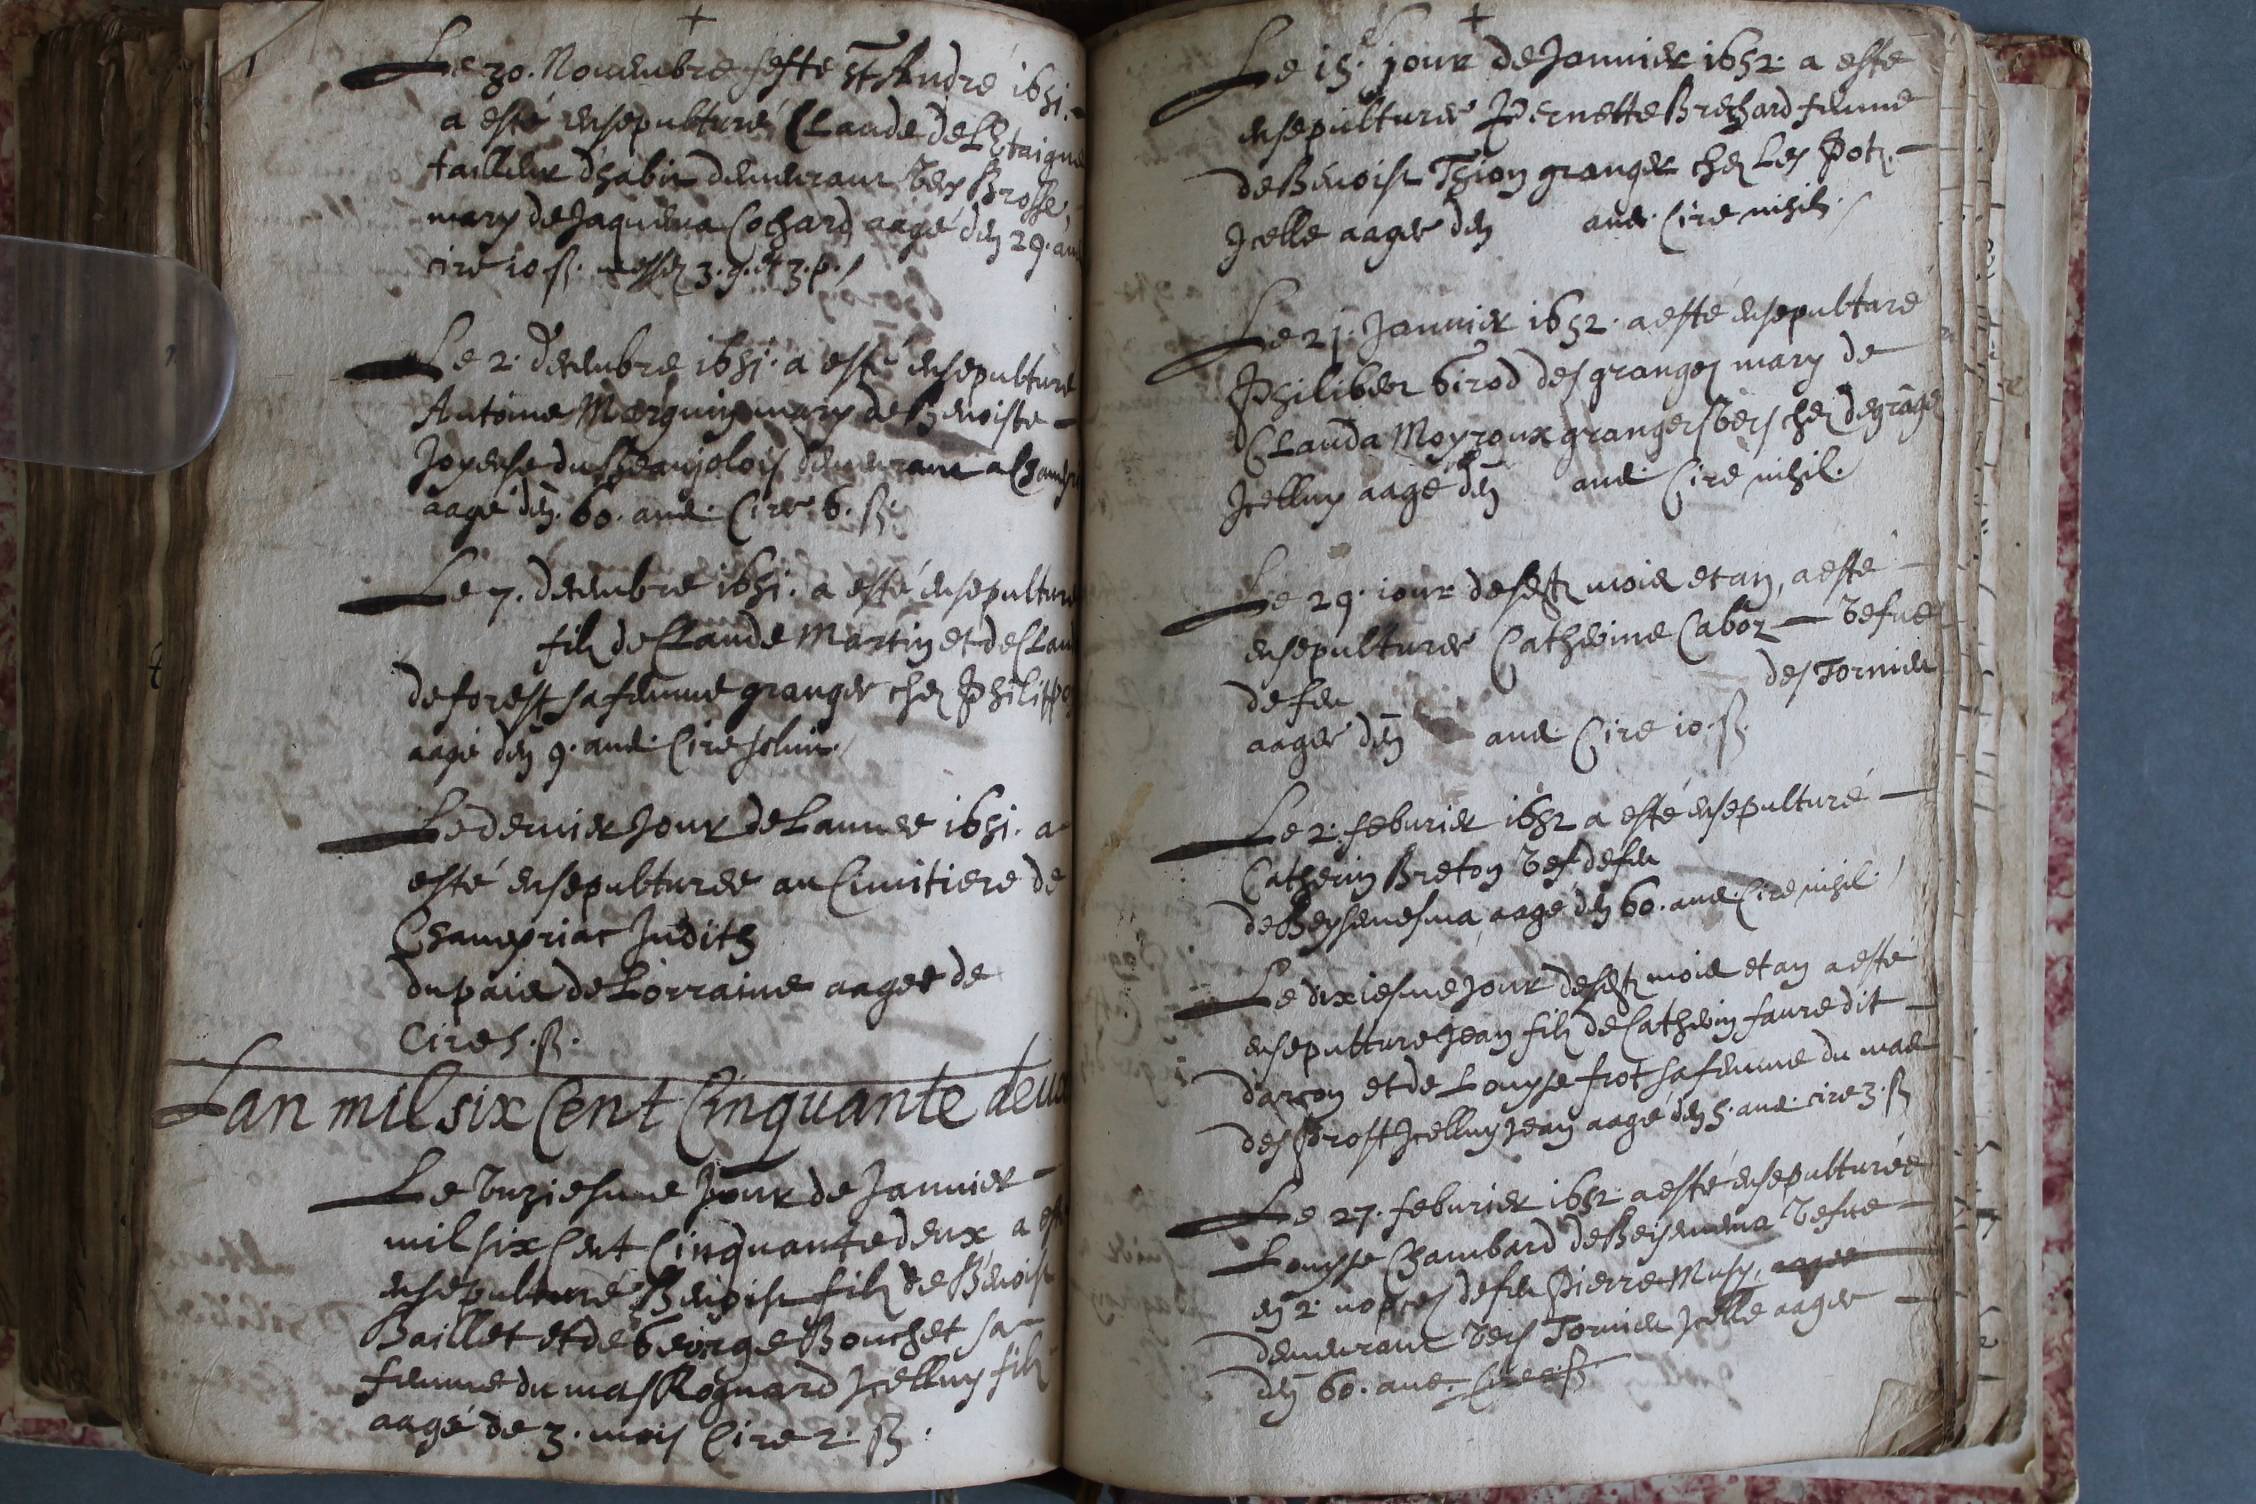 Le 30. Nouembre feste St André 1651.
a esté ensepulturé Claude de Lestaigne
tailleur d'habis demeurant vers Brosse,
mary de Jaquema Cochard aagé den 29. ans
cire 10 ß. messes 3. g. et 3. p.
Le 2. decembre 1651. a esté ensepulturé
Antoine Marguin mary de Benoiste
Joyeuse du Beaujolois demeurant a
aagé den 60. ans. Cire 6. ß.
Le 7. decembre 1651. a esté ensepulturé
filz de Claude Martin et de Clau
deforest sa femme granger chez Philippo
aagé den 9. ans. Cire soluit.
Le dernier Jour de Lannee 1651. a
esté ensepulturee au Cimitiere de
Champriac Judith
du païs de Lorraine aagee de
Cire 5. ß.
Lan mil six Cent Cinquante deux
Le unziesme Jour de Januier
mil six Cent Cinquante deux a esté
ensepulturé Benoist filz de Benoist
Baillet et de George Bouchet sa
femme du mas Roguard Jcelluy filz
aagé de 3. mois Cire 2. ß.
Le 15.e jour de Januier 1652. a esté
ensepulturee Pernette Brechard femme
de Benoist Thion granger chez Les Potz.
Jcelle aagee den ans. Cire nihil.
Le 21. Januier 1652. a esté ensepulturé
Philibert Girod des granges mary de
Clauda Moyroux grangers vers chez degrange
Jcelluy aagé den ans Cire nihil.
Le 29. iour desdt mois et an, a esté
ensepulturee Catherine Caboz vefue
de feu des Tornier
aagee den ans. Cire 10. ß.
Le 2. feburier 1652 a esté ensepulturé
Catherin Breton vef de feu
de aagé den 60. ans. Cire nihil.
Le dixiesme Jour desdt mois et an a esté
ensepulturé Jean filz de Catherin faure dit
darcon et de Louyse frot sa femme du mas
des Prost Jcelluy Jean aagé den 5. ans. cire 3. ß
Le 27. feburier 1652. a esté ensepulturée
Louyse Chambard de vefue
en 2. nopces de feu Pierre Musy, aagee
demeurant vers Tornier Jcelle aagee
den 60. ans. Cire ß